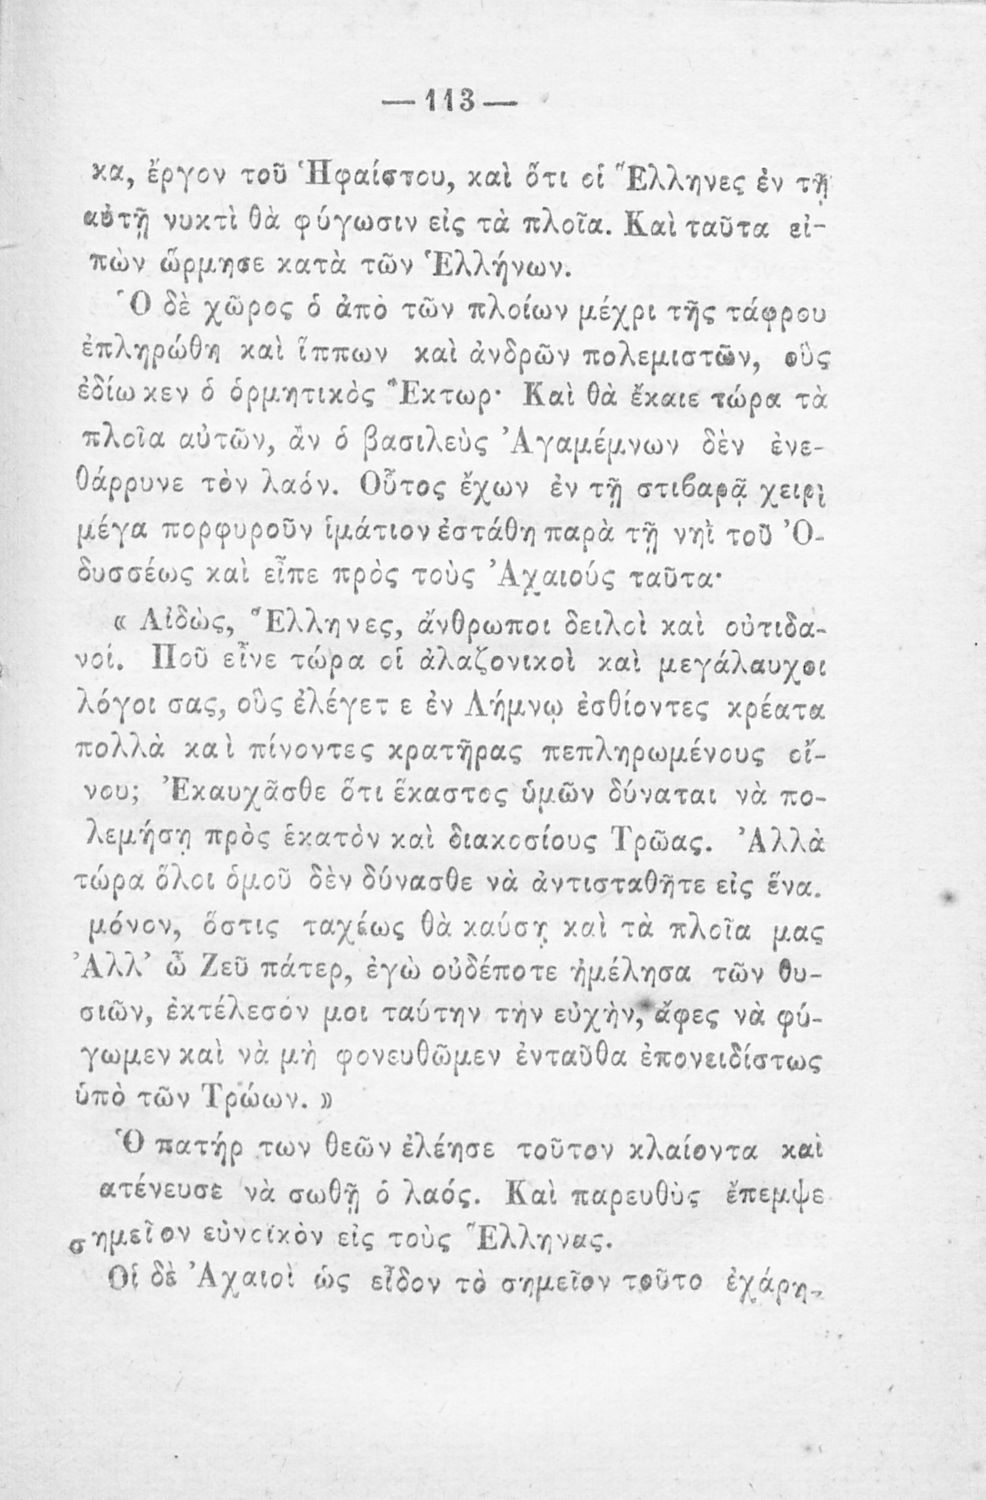 —113—
κα, ἔργον τοῦ Ἡφαίστου, καὶ ὅτι οἱ Ἕλληνες ἐν τῇ
αὐτῇ νυκτὶ θὰ φύγωσιν εἰς τὰ πλοῖα. Καὶ ταῦτα εἰ-
πὼν ὥρμησε κατὰ τῶν Ἑλλήνων.
Ὁ δὲ χῶρος ὁ ἀπὸ τῶν πλοίων μέχρι τῆς τάφρου
ἐπληρώθη καὶ ἵππων καὶ ἀνδρῶν πολεμιστῶν, οὓς
ἐδίωκεν ὁ ὁρμητικὸς Ἕκτωρ· Καὶ θὰ ἔκαιε τώρα τὰ
πλοῖα αὐτῶν, ἂν ὁ βασιλεὺς Ἀγαμέμνων δὲν ἐνε-
θάρρυνε τὸν λαόν. Οὗτος ἔχων ἐν τῇ στιβαρᾷ χειρὶ
μέγα πορφυροῦν ἱμάτιον ἐστάθη παρὰ τῇ νηῒ τοῦ Ὀ-
δυσσέως καὶ εἶπε πρὸς τοὺς Ἀχαιούς ταῦτα·
« Αἰδὼς, Ἕλληνες, ἄνθρωποι δειλοὶ καὶ οὐτιδα-
νοί. Ποῦ εἶνε τώρα οἱ ἀλαζονικοὶ καὶ μεγάλαυχοι
λόγοι σας, οὓς ἐλέγετ ε ἐν Λήμνῳ ἐσθίοντες κρέατα
πολλὰ καὶ πίνοντες κρατῆρας πεπληρωμένους οἴ-
νου; Ἐκαυχᾶσθε ὅτι ἕκαστος ὑμῶν δύναται νὰ πο-
λεμήσῃ πρὸς ἑκατὸν καὶ διακοσίους Τρῶας. Ἀλλὰ
τώρα ὅλοι ὁμοῦ δὲν δύνασθε νὰ ἀντισταθῆτε εἰς ἕνα.
μόνον, ὅστις ταχέως θὰ καύσῃ καὶ τὰ πλοῖα μας
Ἀλλ’ ὦ Ζεῦ πάτερ, ἐγὼ οὐδέποτε ἠμέλησα τῶν θυ-
σιῶν, ἐκτέλεσόν μοι ταύτην τὴν εὐχὴν, ἄφες νὰ φύ-
γωμεν καὶ νὰ μὴ φονευθῶμεν ἐνταῦθα ἐπονειδίστως
ὑπὸ τῶν Τρώων. »
Ὁ πατήρ των θεῶν ἐλέησε τοῦτον κλαίοντα καὶ
ατένευσε νὰ σωθῇ ὁ λαός. Καὶ παρευθὺς ἔπεμψε
σημεῖον εὐνοϊκὸν εἰς τοὺς Ἕλληνας.
Οἱ δὲ Ἀχαιοὶ ὡς εἶδον τὸ σημεῖον τοῦτο ἐχάρη-